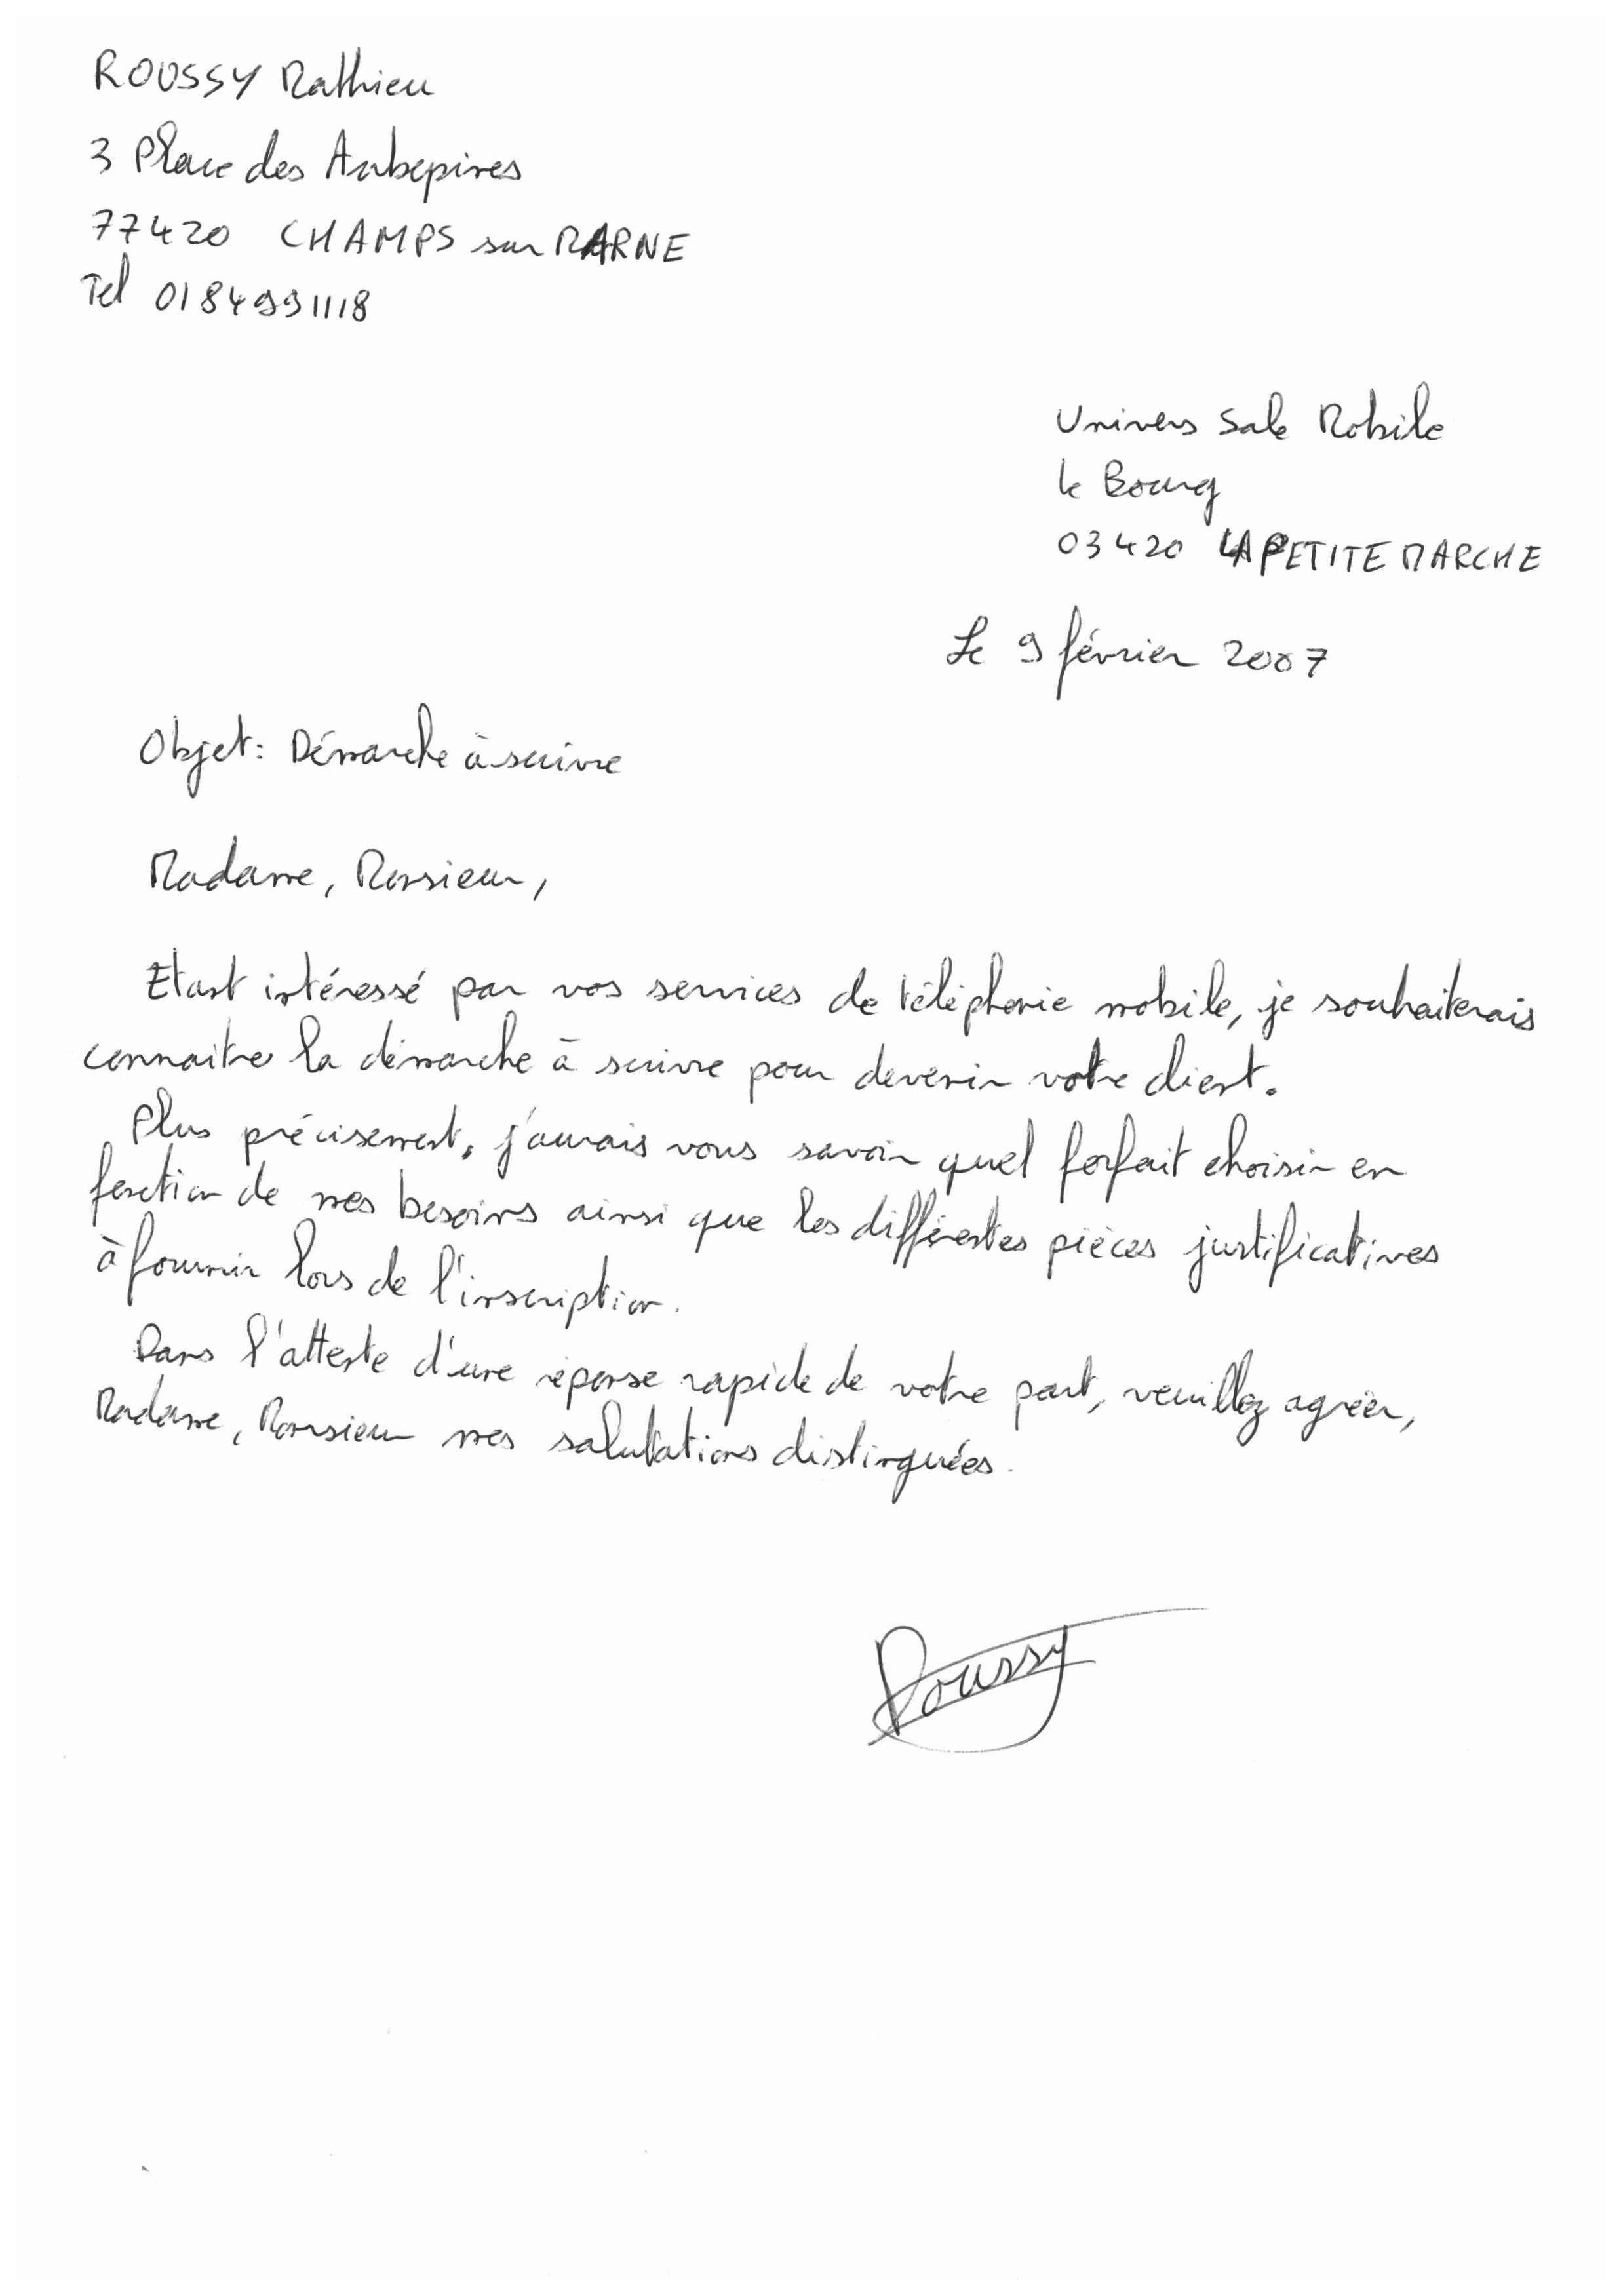 ROUSSY Mathieu
3 Place des Aubepines
77420 CHAMPS sur MARNE
Tel 0184991118
Univers Sale Mobile
le Bourg
03420 LA PETITE MARCHE
Le 9 février 2007
Objet: Démarche à suivre
Madame, Monsieur,
Etant intéressé par vos services de téléphonie mobile, je souhaiterais
connaitre la démarche à suivre pour devenir votre client.
Plus précisement, j'aurais vous savoir quel forfait choisir en
fonction de mes besoins ainsi que les différentes pièces justificatives
à fournir lors de l'inscription.
Dans l'attente d'une réponse rapide de votre part, veuillez agréer,
Madame, Monsieur mes salutations distinguées.
Roussy